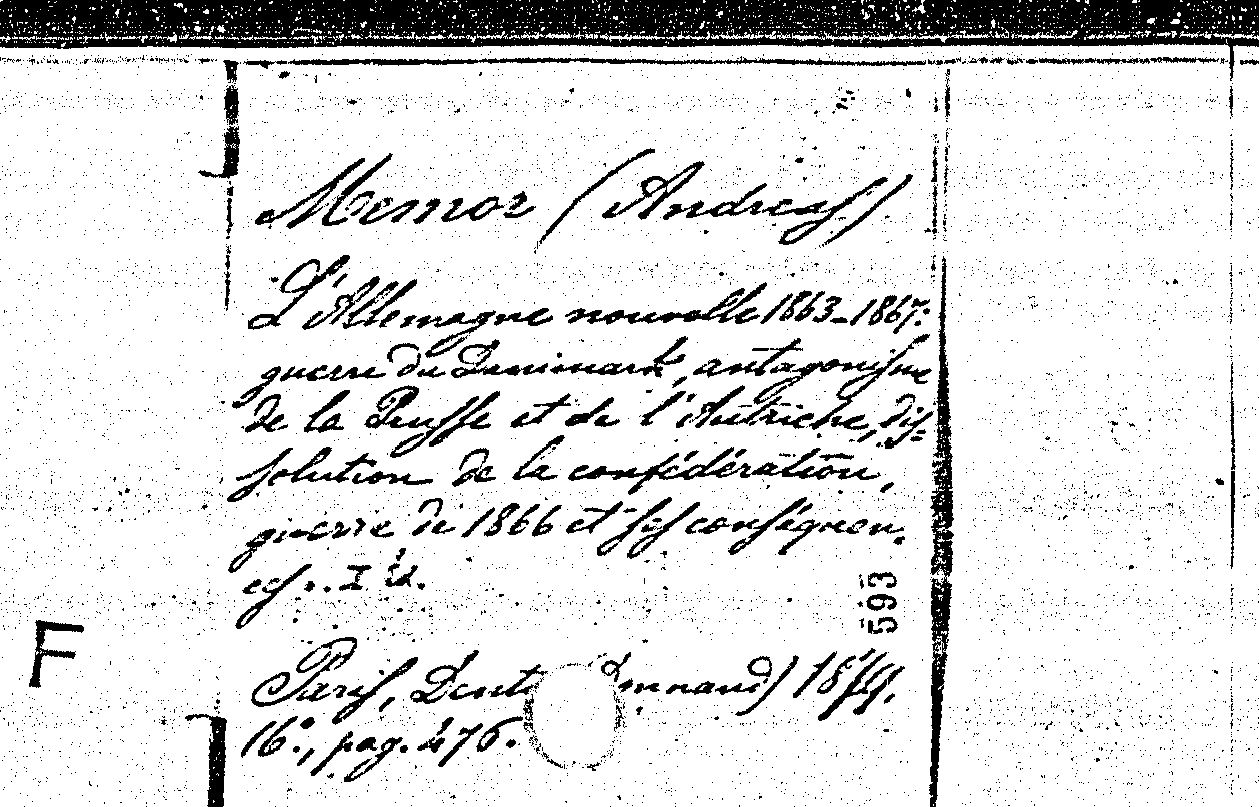 Memor (Andreas)
L'Allemagne nouvelle 1863-1867:
guerre du Danimark, antagonisme
de la Prusse et de l'Autriche, dis=
solution de la confédération,
guerre de 1866 et ses conséquen.
ces.. I éd.
593
F
Paris, Dentu
16°., pag. 476.